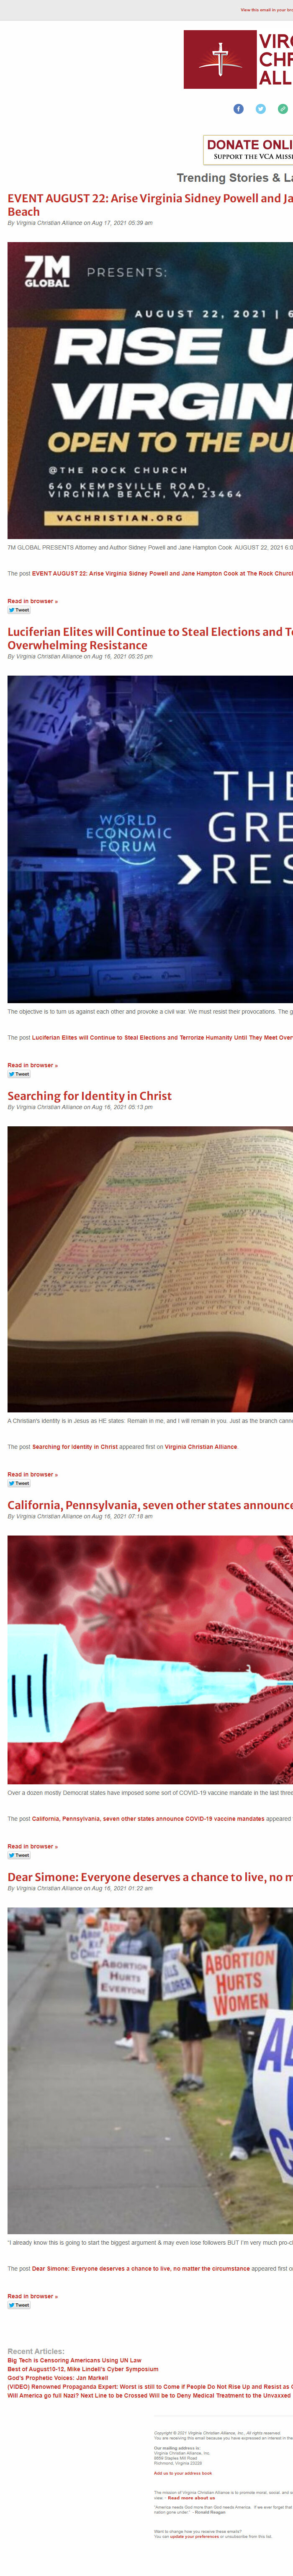 View this email in your bro
VIRG
CHR
ALL
DONATE ONLI
SUPPORT THE VCA MISSI
Trending Stories & La
EVENT AUGUST 22: Arise Virginia Sidney Powell and Ja
Beach
By Virginia Christian Alliance on Aug 17, 2021 05:39 am
7M
GLOBAL
PRESENTS:
AUGUST 22, 2021 | 6
RISE U
VIRGIN
OPEN TO THE PU
@THE ROCK CHURCH
640 KEMPSVILLE ROAD,
VIRGINIA BEACH, VA, 23464
VACHRISTIAN.ORG
7M GLOBAL PRESENTS Attorney and Author Sidney Powell and Jane Hampton Cook AUGUST 22, 2021 6:0
The post EVENT AUGUST 22: Arise Virginia Sidney Powell and Jane Hampton Cook at The Rock Church
Read in browser »
Tweet
Luciferian Elites will Continue to Steal Elections and Te
Overwhelming Resistance
By Virginia Christian Alliance on Aug 16, 2021 05:25 pm
WORLD
ECONOMIC
FORUM
THE
GRE
RES
The objective is to turn us against each other and provoke a civil war. We must resist their provocations. The g
The post Luciferian Elites will Continue to Steal Elections and Terrorize Humanity Until They Meet Over
Read in browser »
Tweet
Searching for Identity in Christ
By Virginia Christian Alliance on Aug 16, 2021 05:13 pm
A Christian's identity is in Jesus as HE states: Remain in me, and I will remain in you. Just as the branch cann
The post Searching for Identity in Christ appeared first on Virginia Christian Alliance.
Read in browser »
Tweet
California, Pennsylvania, seven other states announce
By Virginia Christian Alliance on Aug 16, 2021 07:18 am
Over a dozen mostly Democrat states have imposed some sort of COVID-19 vaccine mandate in the last three
The post California, Pennsylvania, seven other states announce COVID-19 vaccine mandates appeared
Read in browser »
Tweet
Dear Simone: Everyone deserves a chance to live, no m
By Virginia Christian Alliance on Aug 16, 2021 01:22 am
ABORTION
HURTS
EVERYONE
KILLS
CHILDREN
ABORTION
HURTS
WOMEN
"I already know this is going to start the biggest argument & may even lose followers BUT I'm very much pro-c
The post Dear Simone: Everyone deserves a chance to live, no matter the circumstance appeared first o
Read in browser »
Tweet
Recent Articles:
Big Tech is Censoring Americans Using UN Law
Best of August10-12, Mike Lindell's Cyber Symposium
God's Prophetic Voices: Jan Markell
(VIDEO) Renowned Propaganda Expert: Worst is still to Come if People Do Not Rise Up and Resist as
Will America go full Nazi? Next Line to be Crossed Will be to Deny Medical Treatment to the Unvaxxed
Copyright © 2021 Virginia Christian Alliance, Inc., All rights reserved.
You are receiving this email because you have expressed an interest in the
Our mailing address is:
Virginia Christian Alliance, Inc.
Richmond, Virginia 23228
Add us to your address book
The mission of Virginia Christian Alliance is to promote moral, social, and
- Read more about us
"America needs God more than God needs America. If we ever forget that
nation gone under." ~ Ronald Reagan
Want to change how you receive these emails?
You can update your preferences or unsubscribe from this list.